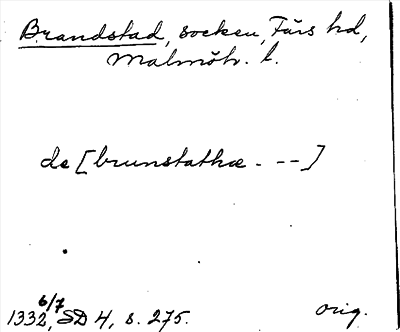 Brandstad, socken, Färs hd,
Malmöh. l.
de [brunstathæ - --]
6/7
1332, SD 4, s. 275.
orig.